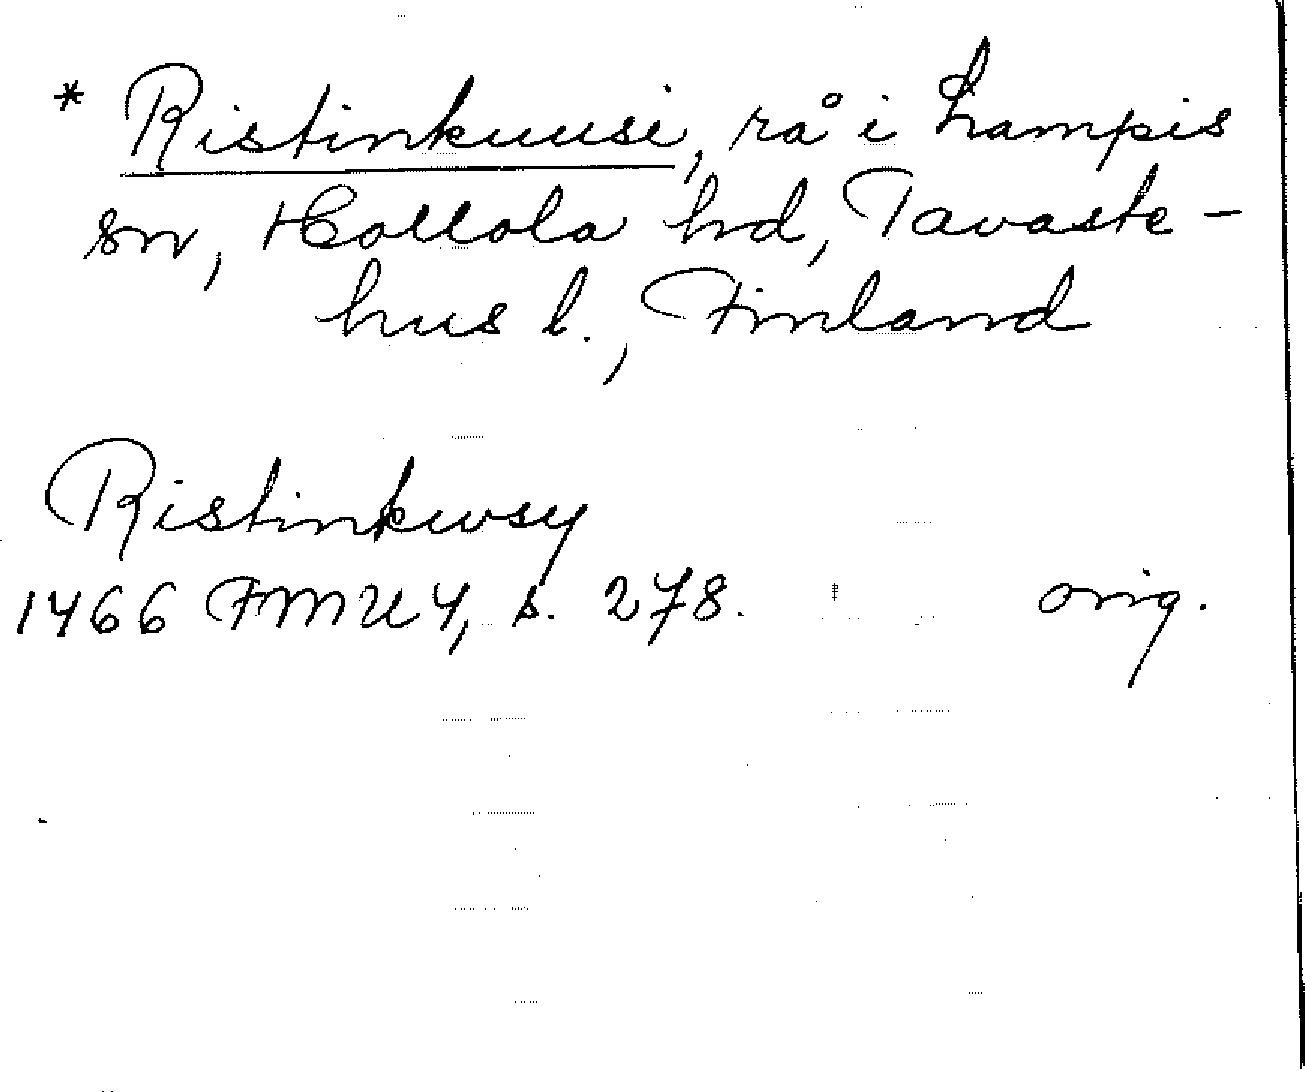 * Ristinkuusi, rå i Lampis
sn, Hollola hd, Tavaste-
hus l., Finland
Ristinkwsy
1466 FMU 4, s. 278. orig.